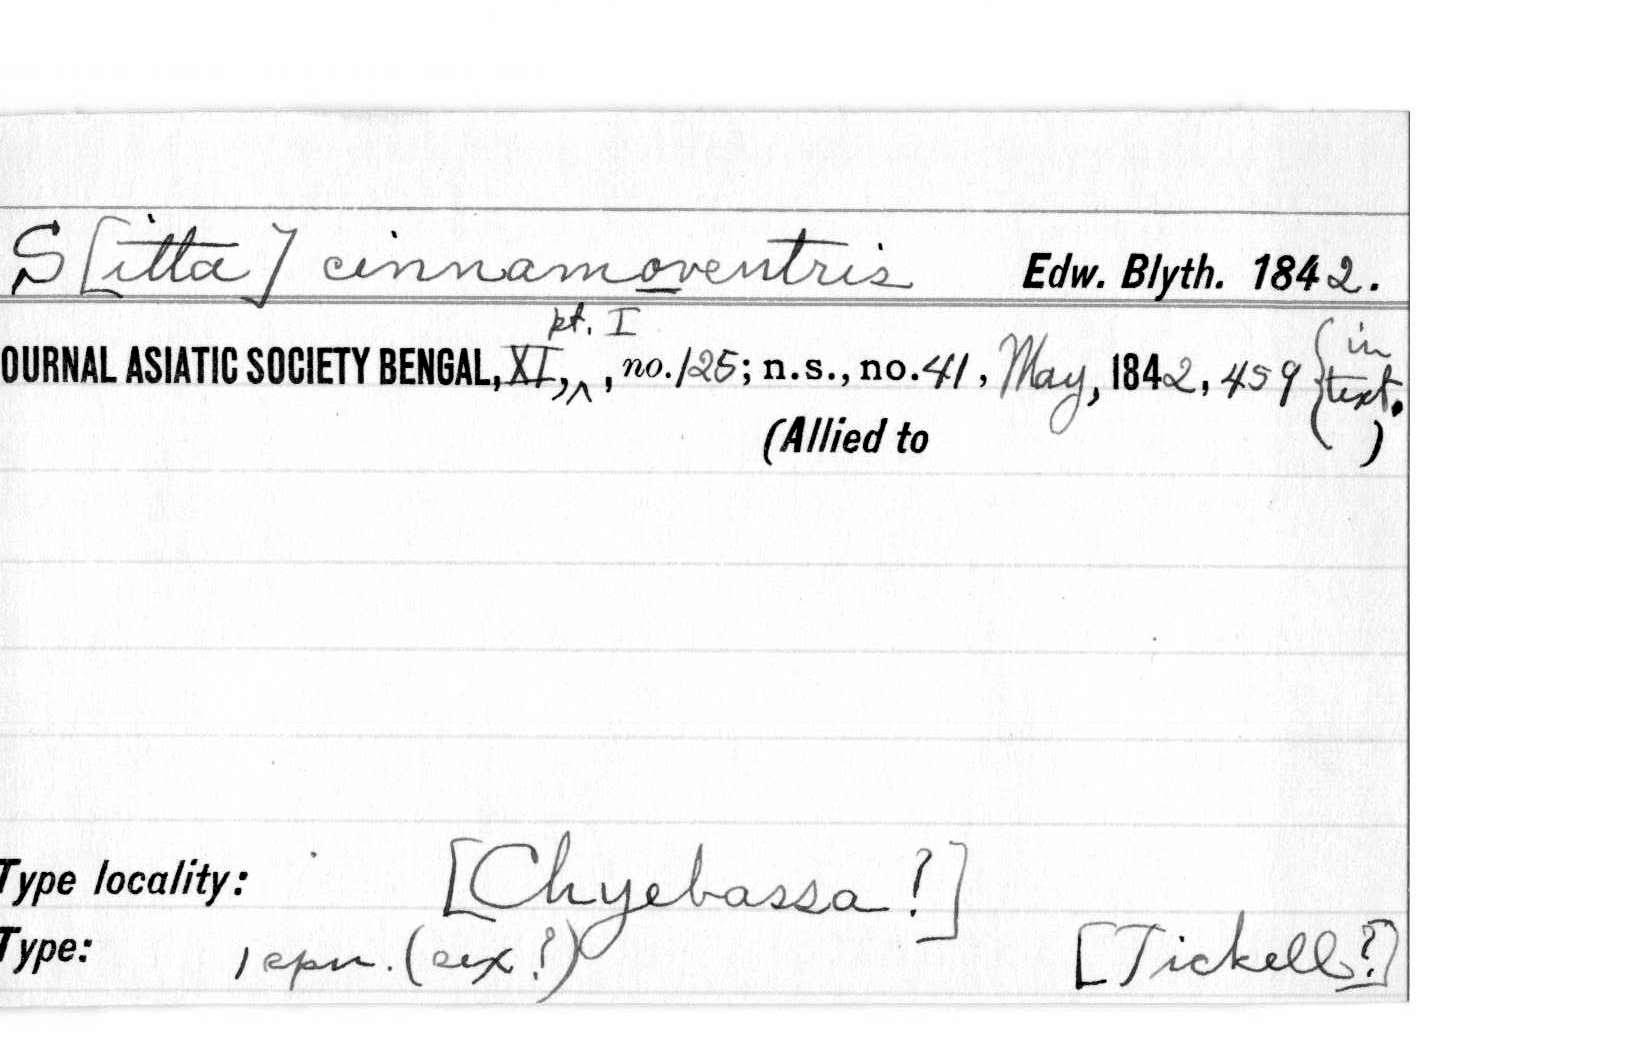 S[itta] cinnamoventris Edw. Blyth. 1842.
pt. I
OURNAL ASIATIC SOCIETY BENGAL, XI, ^, no. 125; n.s., no. 41, May, 1842, 459 {in text.
(Allied to )
Type locality: [Chyebassa ?]
Type: 1 spn. (sex ?) [Tickell ?]